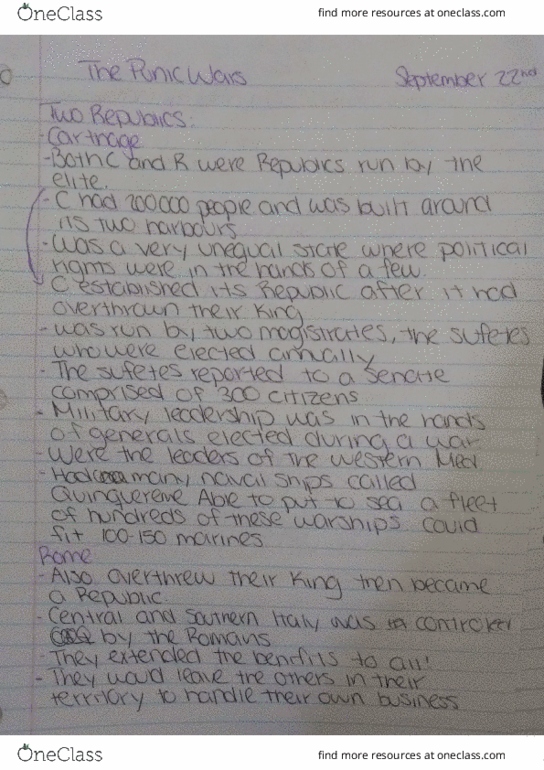 OneClass
find more resources at oneclass.com
The Punic Wars
September 22nd
Two Republics:
-Carthage
-Both C and R were Republics run by the
elite.
-C had 200000 people and was built around
its two harbours
-was a very unequal state where political
rights were in the hands of a few.
C established its Republic after it had
overthrown their King
-was run by two magistrates, the sufetes
who were elected annually
-The sufetes reported to a senate
comprised of 300 citizens
-Military leadership was in the hands
of generals elected during a war
-Were the leaders of the western Med
-Had many naval ships called
Quinquereme Able to put to sea a fleet
of hundreds of these warships. could
fit 100-150 marines
Rome
-Also overthrew their King then became
a Republic.
-Central and Southern Italy was controlled
by the Romans
-They extended the benefits to all!
-They would leave the others in their
territory to handle their own business
OneClass
find more resources at oneclass.com